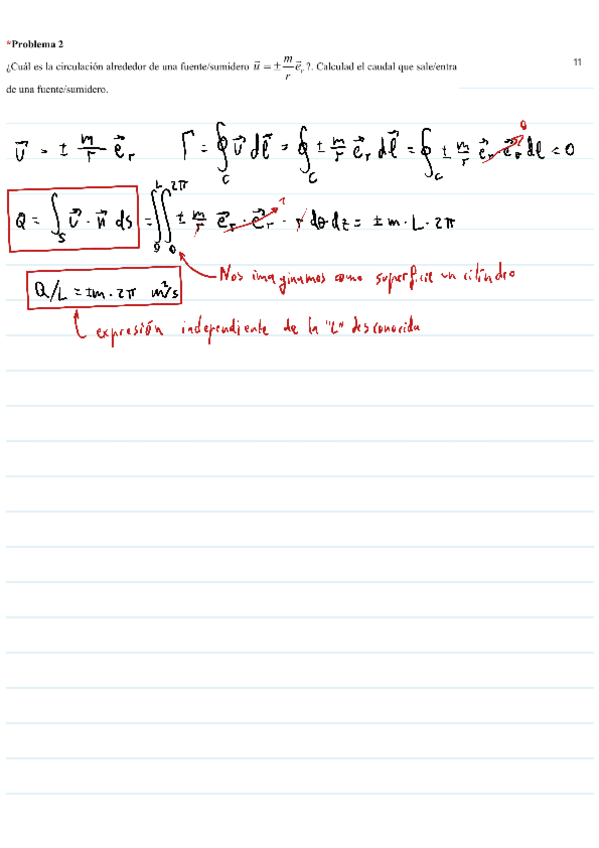 *Problema 2
¿Cuál es la circulación alrededor de una fuente/sumidero u⃗ = ± m/r e⃗_r ?. Calculad el caudal que sale/entra
11
de una fuente/sumidero.
v⃗ = ± m/r e⃗_r    Γ = ∮_C v⃗ dl⃗ = ∮_C ± m/r e⃗_r dl⃗ = ∮_C ± m/r e⃗_r e⃗_θ dl = 0
Q = ∫_S v⃗ · n⃗ ds = ∫_0^L ∫_0^2π ± m/r e⃗_r · e⃗_r · r dθ dz = ± m · L · 2π
Nos imaginamos como superficie un cilindro
Q/L = ±m · 2π m²/s
expresión independiente de la "L" desconocida